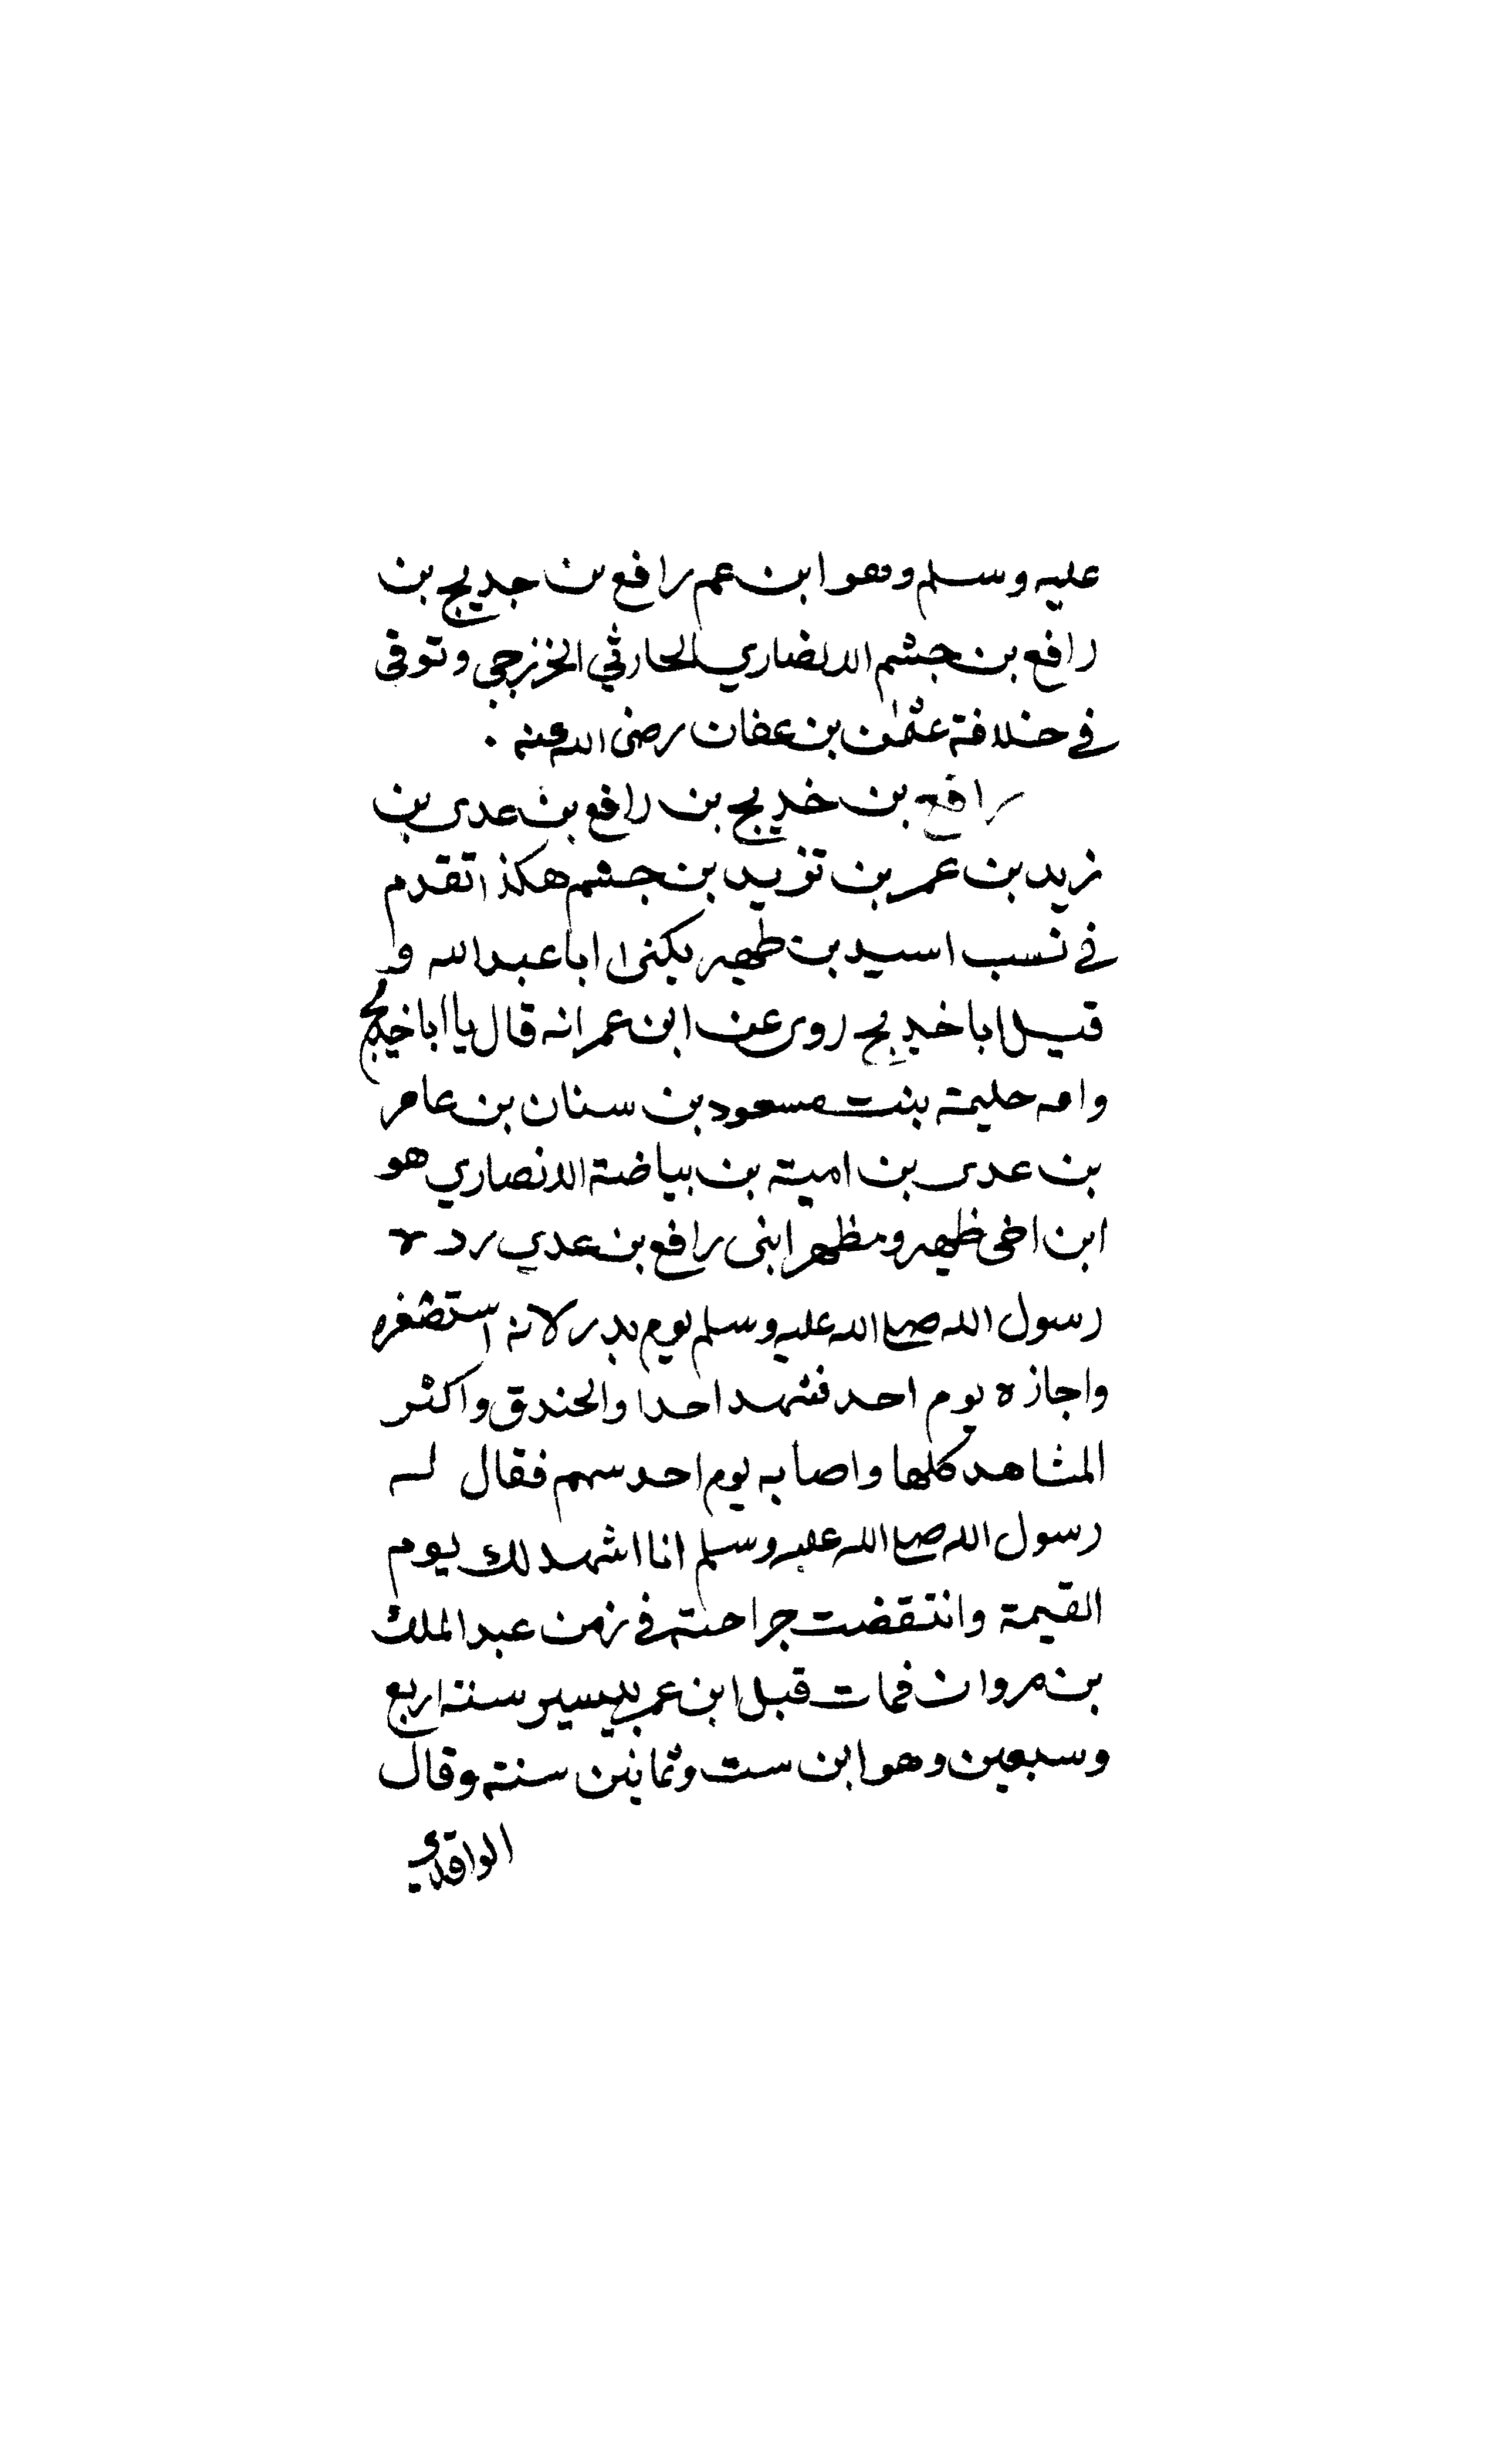 عليه وسلم وهو ابن عم رافع بن جديج بن
رافع بن جشم الانصاري الحارثي الخزرجي وتوفى
في خلافة عثمٰن بن عفان رضى الله عنه .
رافع بن خديج بن رافع بن عدى بن
زيد بن عمر بن تزيد بن جشم هكذا تقدم
في نسب اسيد بن ظهير يكنى ابا عبد الله و
قيل ابا خديج روى عن ابن عمر انه قال يا ابا خديج
وامه حليمة بنت مسعود بن سنان بن عامر
بن عدى بن امية بن بياضة الانصاري هو
ابن اخى ظهير ومظهر ابنى رافع بن عدي رده
رسول الله صلى الله عليه وسلم يوم بدر لانه استصغره
واجازه يوم احد فشهد احدا والخندق واكثر
المشاهد كلها واصابه يوم احد سهم فقال له
رسول الله صلى الله عليه وسلم انا اشهد لك يوم
القيمة وانتقضت جراحته في زمن عبد الملك
بن مروان فمات قبل ابن عمر بيسير سنة اربع
وسبعين وهو ابن ست وثمانين سنة وقال
الواقدي